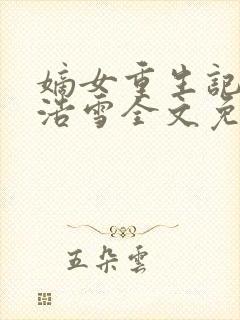 嫡女重生記
浩雪全文免
五朵雲